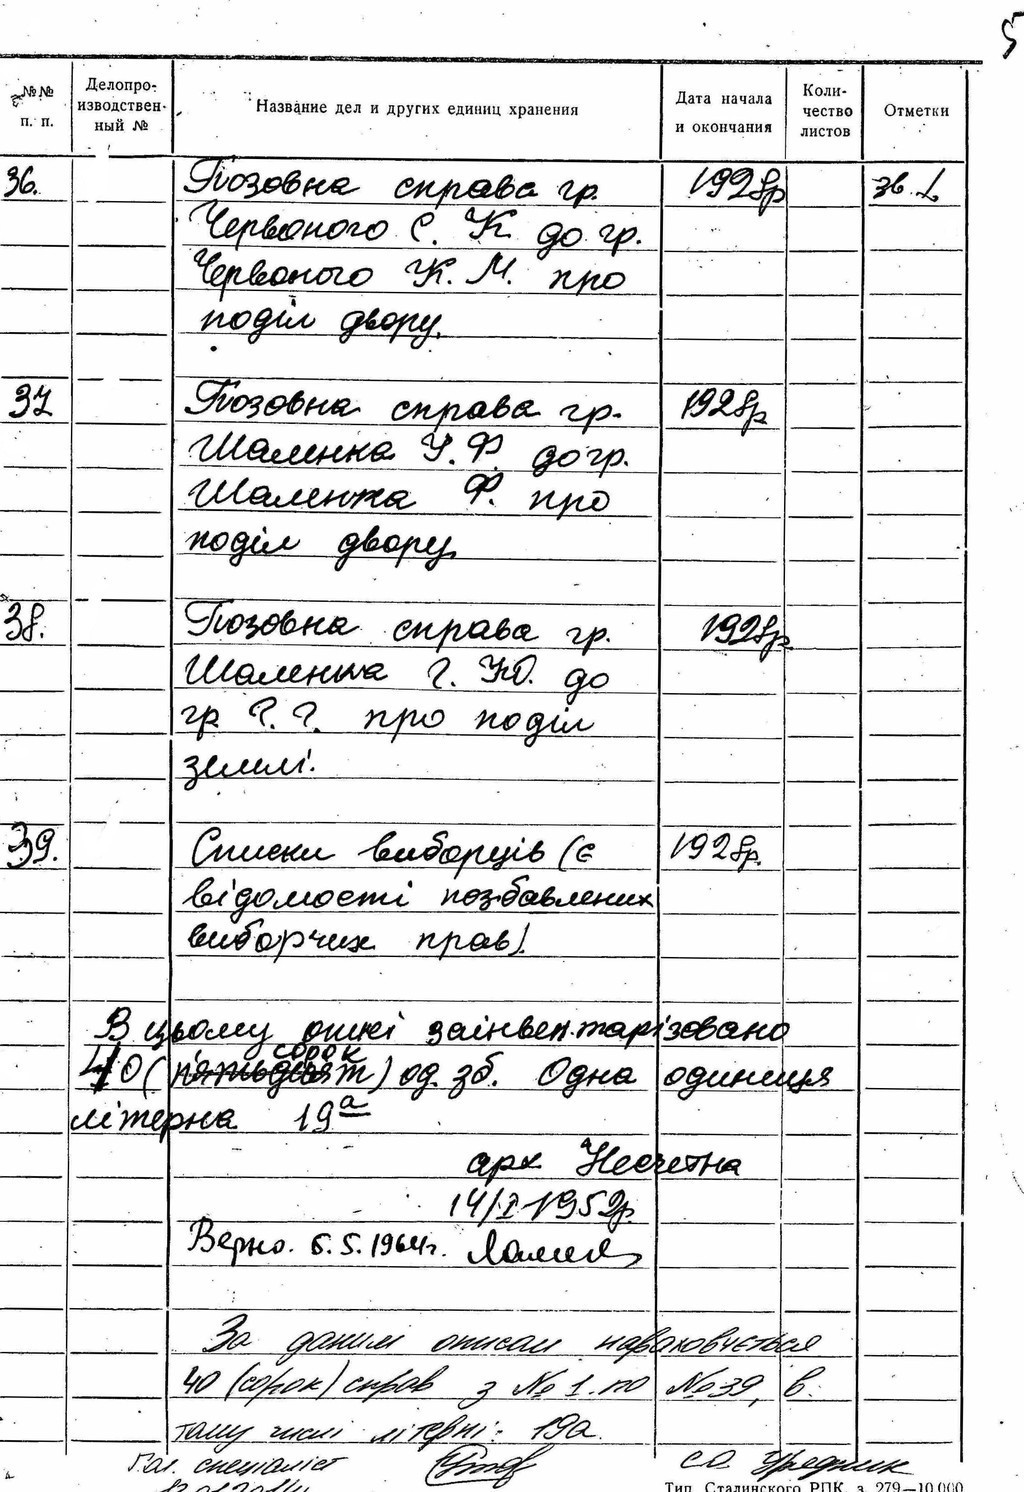 5
№№ п. п.
Делопроизводственный №
Название дел и других единиц хранения
Дата начала и окончания
Количество листов
Отметки
36. Позовна справа гр. 1928р зв. L
Червоного С. К. до гр.
Червоного К. М. про
поділ двору.
37 Позовна справа гр. 1928р
Шаленка У. Ф. до гр.
Шаленка Ф. про
поділ двору
38. Позовна справа гр. 1928р.
Шаленка Г. Ю. до
гр. Г. Г. про поділ
землі.
39. Списки виборців (є 1928р.
відомості позбавлених
виборчих прав).
В цьому описі заінвентарізовано
сорок
40 (п'ятьдесят) од. зб. Одна одиниця
літерна 19а
арх Несчетна
14/I-1952р.
Верно. 5.5.1964г.
За даним описом нараховується
40 (сорок) справ з № 1 по № 39, в
тому числі літерні: 19а.
Гол. спеціаліст С.О. Урядник
Тип. Сталинского РПК, з. 279—10.000